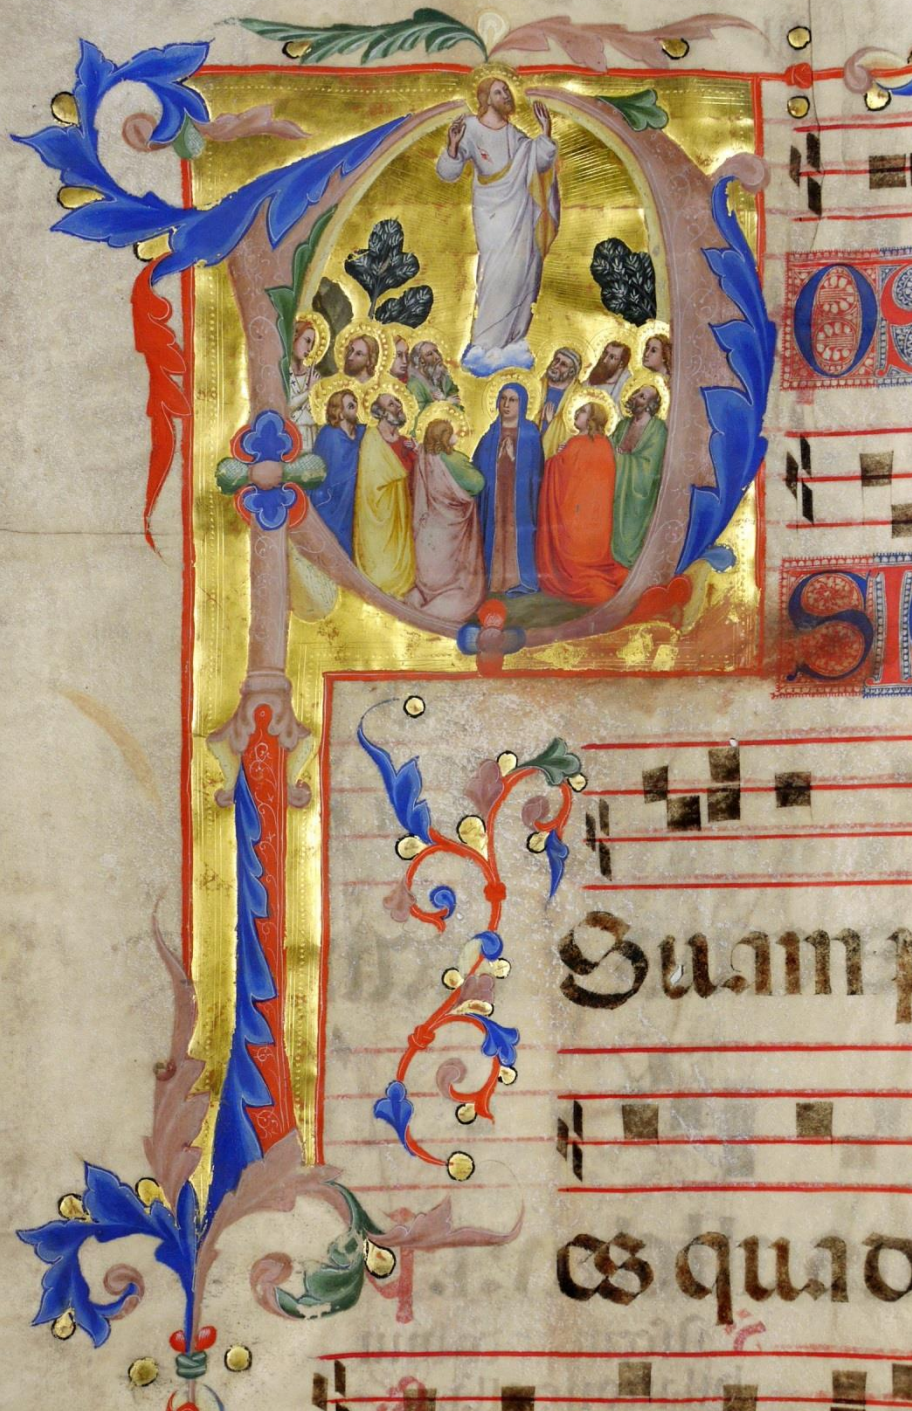 PO
SI
Suam p
es quad